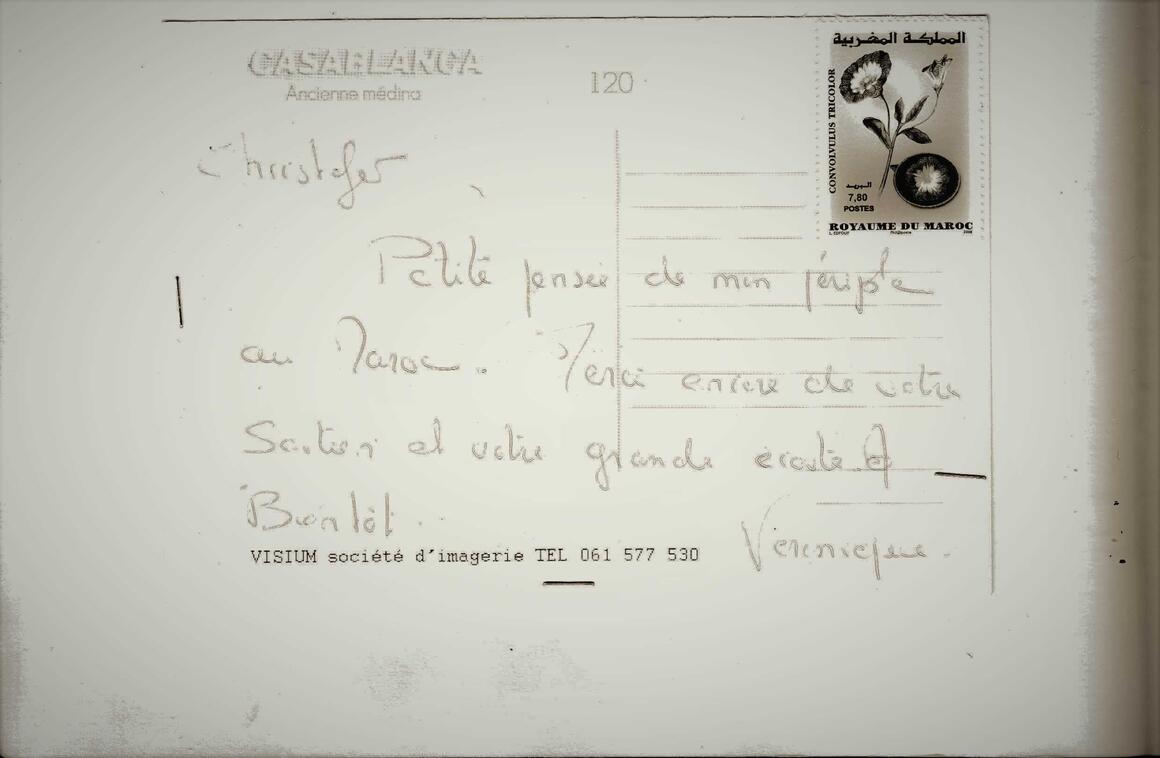 CASABLANCA
Ancienne médina
120
المملكة المغربية
CONVOLVULUS TRICOLOR
البريد
7,80
POSTES
ROYAUME DU MAROC
Christofer
Petite pensée de mon périple
au Maroc. Merci encore de votre
Soutien et votre grande écoute. A
Bientôt.
Véronique.
VISIUM société d'imagerie TEL 061 577 530